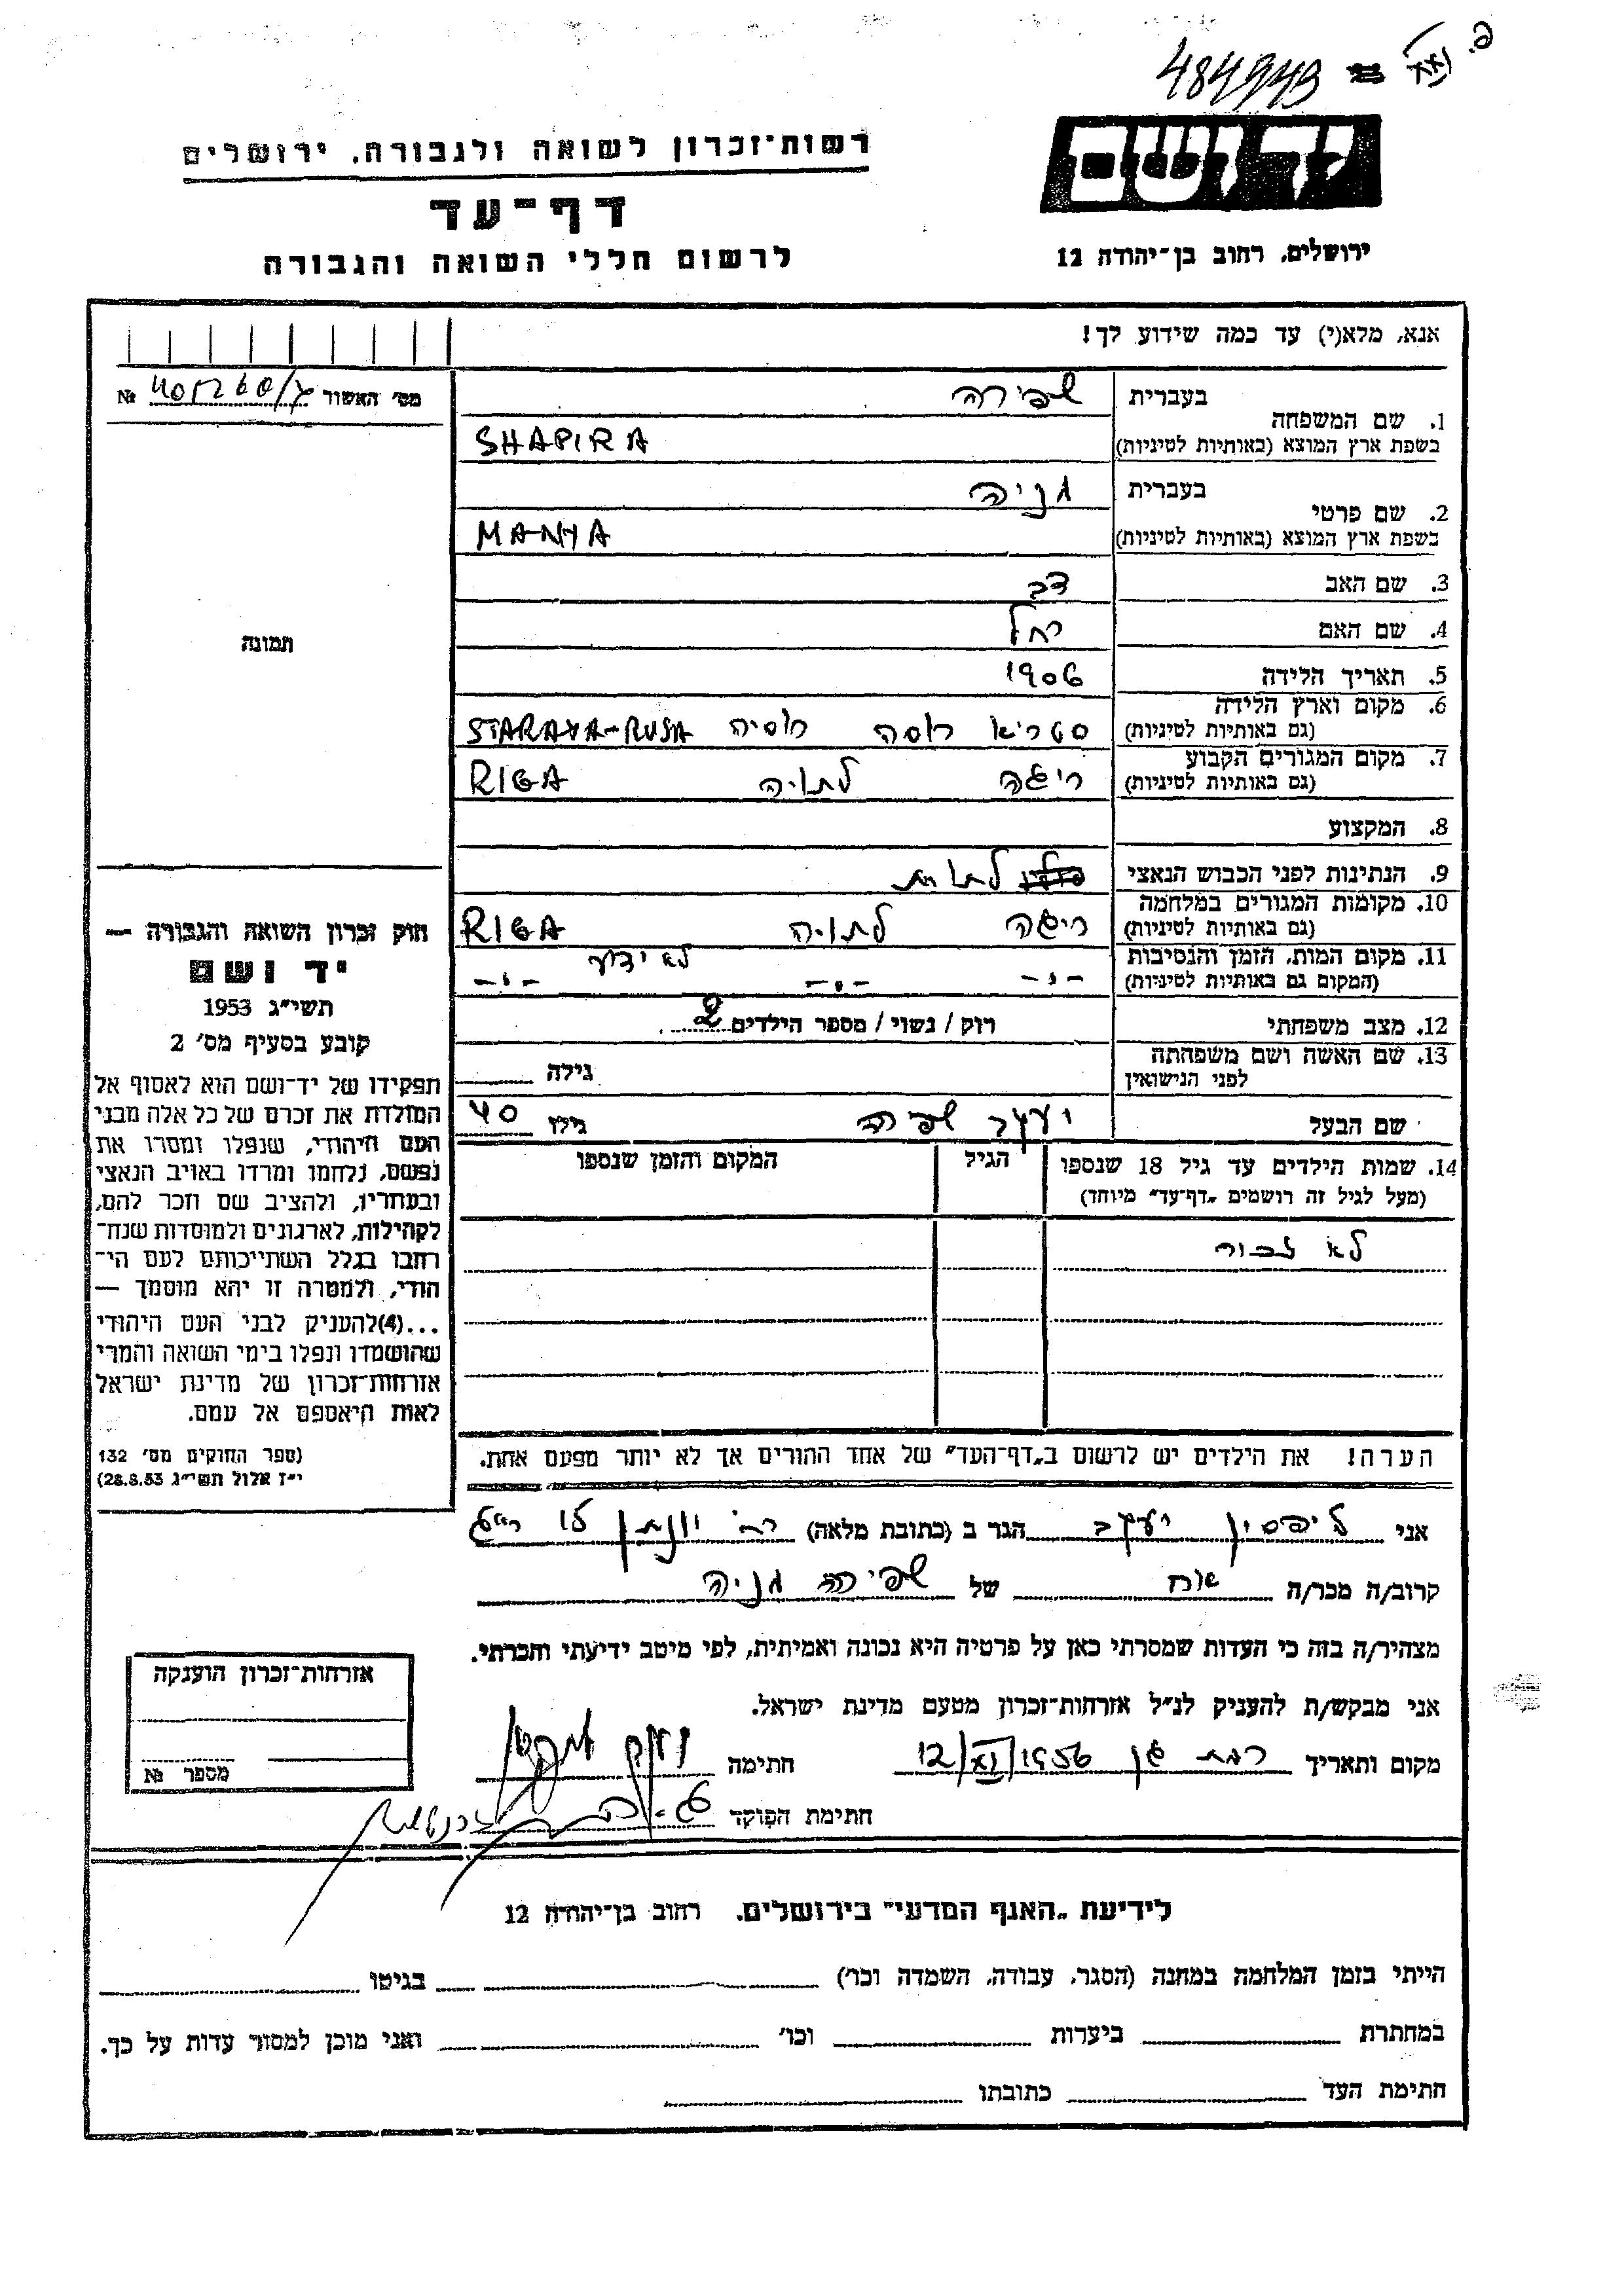 484949
רשות־זכרון לשואה ולגבורה, ירושלים
יד ושם
דף־עד
לרשום חללי השואה והגבורה
ירושלים, רחוב בן־יהודה 12
אנא, מלא(י) עד כמה שידוע לך!
מס׳ האשור №
1. שם המשפחה
בעברית שפירה
בשפת ארץ המוצא (באותיות לטיניות) SHAPIRA
2. שם פרטי
בעברית מניה
בשפת ארץ המוצא (באותיות לטיניות) MANYA
3. שם האב דב
4. שם האם רחל
5. תאריך הלידה 1906
6. מקום וארץ הלידה
(גם באותיות לטיניות) סטריא רוסה רוסיה STARAYA-RUSA
7. מקום המגורים הקבוע
(גם באותיות לטיניות) ריגה לתויה RIGA
8. המקצוע
9. הנתינות לפני הכבוש הנאצי לתוית
10. מקומות המגורים במלחמה
(גם באותיות לטיניות) ריגה לתויה RIGA
11. מקום המות, הזמן והנסיבות לא ידוע
(המקום גם באותיות לטיניות) -"- -"- -"-
12. מצב משפחתי רווק / נשוי / מספר הילדים 2
13. שם האשה ושם משפחתה
לפני הנישואין גילה
שם הבעל יעקב שפירה גילו 40
14. שמות הילדים עד גיל 18 שנספו הגיל המקום והזמן שנספו
(מעל לגיל זה רושמים „דף־עד״ מיוחד)
לא זכור
הערה! את הילדים יש לרשום ב„דף־העד״ של אחד ההורים אך לא יותר מפעם אחת.
תמונה
חוק זכרון השואה והגבורה —
יד ושם
תשי״ג 1953
קובע בסעיף מס׳ 2
תפקידו של יד־ושם הוא לאסוף אל
המולדת את זכרם של כל אלה מבני
העם היהודי, שנפלו ומסרו את
נפשם, נלחמו ומרדו באויב הנאצי
ובעוזריו, ולהציב שם וזכר להם,
לקהילות, לארגונים ולמוסדות שנח־
רבו בגלל השתייכותם לעם הי־
הודי, ולמטרה זו יהא מוסמך —
...(4)להעניק לבני העם היהודי
שהושמדו ונפלו בימי השואה והמרי
אזרחות־זכרון של מדינת ישראל
לאות היאספם אל עמם.
(ספר החוקים מס׳ 132
י״ז אלול תשי״ג 28.8.53)
אני ליפסין יעקב הגר ב (כתובת מלאה) רח׳ יונתן
קרוב/ה מכר/ה אח של שפירה מניה
מצהיר/ה בזה כי העדות שמסרתי כאן על פרטיה היא נכונה ואמיתית, לפי מיטב ידיעתי והכרתי.
אני מבקש/ת להעניק לנ״ל אזרחות־זכרון מטעם מדינת ישראל.
מקום ותאריך רמת גן 12/VI/1956 חתימה
חתימת הפוקד
אזרחות־זכרון הוענקה
מספר №
לידיעת „האגף המדעי״ בירושלים, רחוב בן־יהודה 12
הייתי בזמן המלחמה במחנה (הסגר, עבודה, השמדה וכו׳) בגיטו
במחתרת ביערות וכו׳ ואני מוכן למסור עדות על כך.
חתימת העד כתובתו